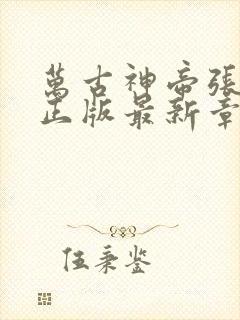 萬古神帝張
正版最新章
伍秉鉴